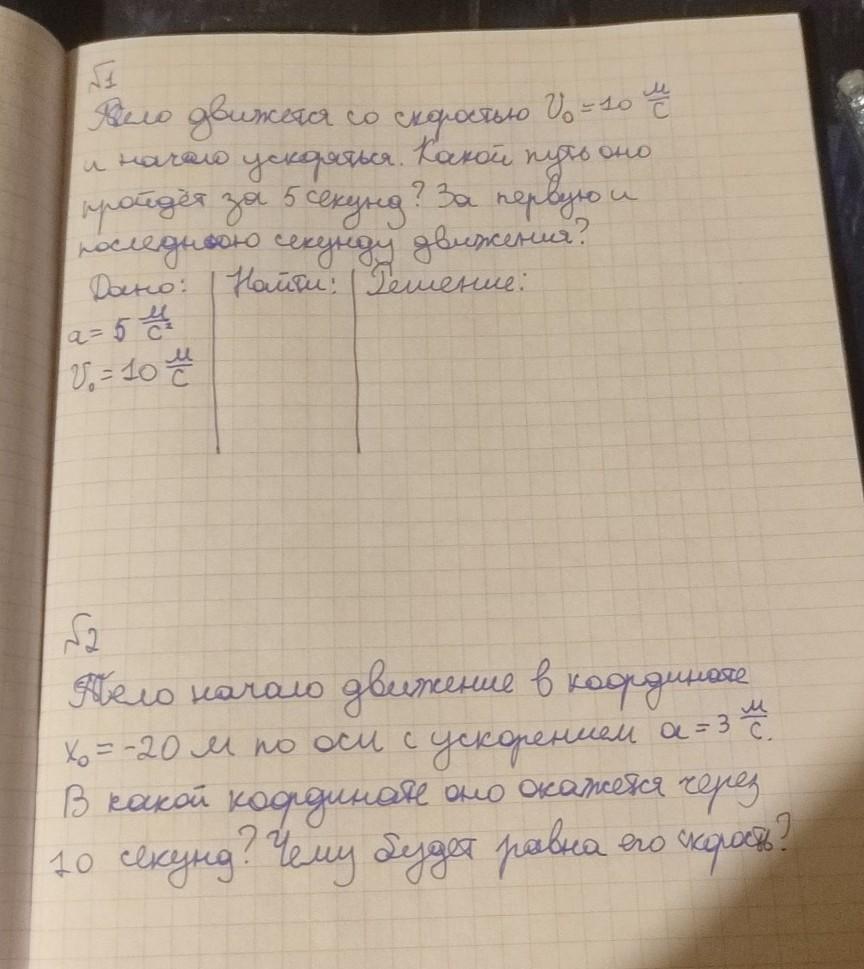 √1
Тело движется со скоростью V₀ = 10 м/с
и начало ускоряться. Какой путь оно
пройдёт за 5 секунд? За первую и
последнюю секунду движения?
Дано: Найти: Решение:
a = 5 м/с²
V₀ = 10 м/с
√2
Тело начало движение в координате
x₀ = -20 м по оси с ускорением a = 3 м/с.
В какой координате оно окажется через
10 секунд? Чему будет равна его скорость?